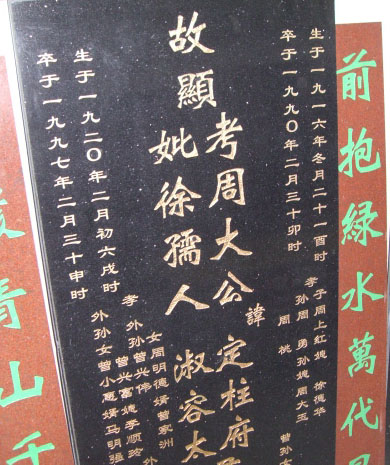 前抱綠水萬代
生于一九一六年冬月二十一酉时
卒于一九九〇年二月三十卯时
孝子周上紅媳徐德华
孙周勇孙媳周大玉
周桃
曾孙女
諱定柱府
故顯考周大公
妣徐孺人淑容太
女周明德婿曾家洲
孝外孙曾兴伟
外孙曾兴富媳李顺玲
外孙女曾小惠婿马明强
生于一九二〇年二月初六戌时
卒于一九九七年二月三十申时
青山千